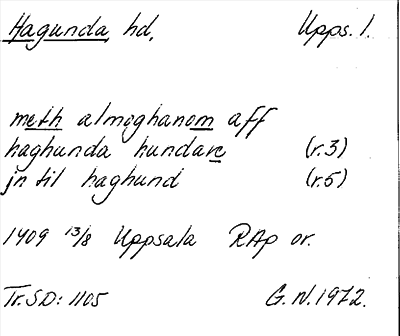 Hagunda hd. Upps. l.
meth almoghanom aff
haghunda hundare (r.3)
jn til haghund (r.5)
1409 13/8 Uppsala RAp or.
Tr. SD: 1105 G.N. 1972.